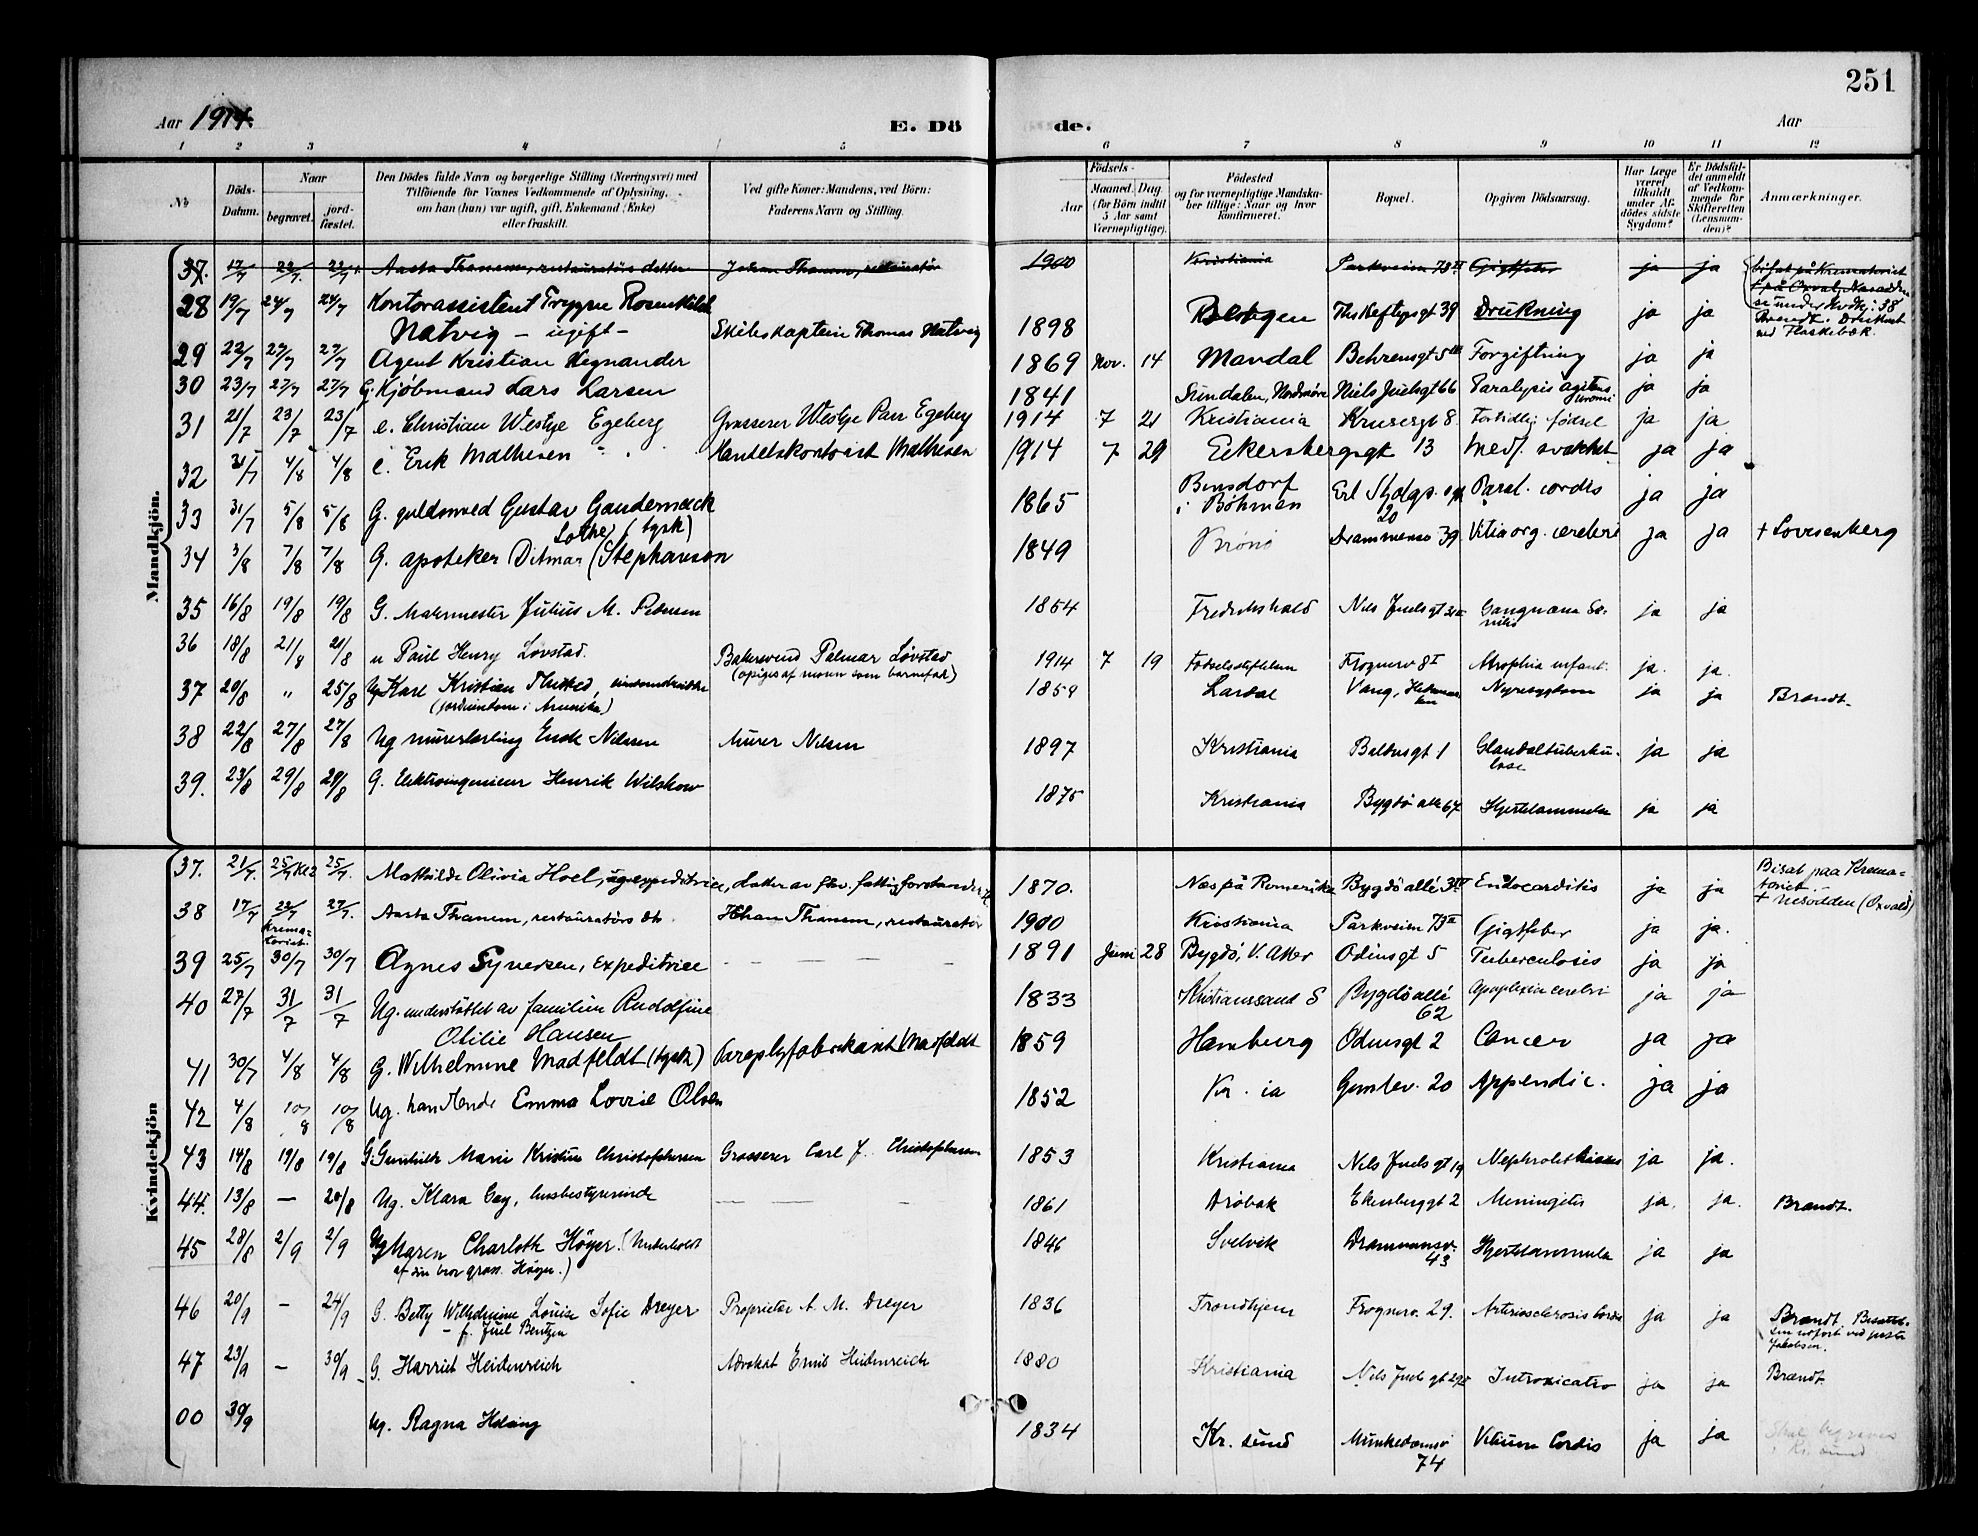 251
Aar 1914.
E. Döde.
Aar
1 2 3 4 5 6 7 8 9 10 11 12
№
Döds-Datum.
Naar begravet.
jordfæstet.
Den Dödes fulde Navn og borgerlige Stilling (Næringsvei) med Tilföiende for Voxnes Vedkommende af Oplysning, om han (hun) var ugift, gift, Enkemand (Enke) eller fraskilt.
Ved gifte Koner: Mandens, ved Börn: Faderens Navn og Stilling.
Födsels-
Aar
Maaned Dag (for Börn indtil 5 Aar samt Værnepligtige).
Födested og for værnepligtige Mandskaber tillige: Naar og hvor konfirmeret.
Bopæl.
Opgiven Dödsaarsag.
Har Læge været tilkaldt under Afdödes sidste Sygdom?
Er Dödsfaldet anmeldt af Vedkommende for Skifteretten (Lensmanden)?
Anmærkninger.
Mandkjön.
37. 17/7 22/7 22/7 Aasta Thanem, restauratörs datter Johan Thanem, restauratör 1900 Kristiania Parkveien 73 II Gigtfeber ja ja
28 19/7 24/7 24/7 Kontorassistent Trygve Rosenkilde
Natvig – ugift – Skibskaptein Thomas Natvig 1898 Bergen Ths Heftyesgt 39 Drukning ja ja Brandt. Druknet ved Flaskebæk.
29 22/7 27/7 27/7 Agent Kristian Hegnander 1869 Nov. 14 Mandal Behrensgt 5 III Forgiftning ja ja
30 23/7 27/7 27/7 G. Kjøbmand Lars Larsen 1841 Sundalen, Nordmøre Niels Juelsgt 66 Paralysis agitans ja ja
31 21/7 23/7 23/7 e. Christian Westye Egeberg Grosserer Westye Parr Egeberg 1914 7 21 Kristiania Krusesgt 8. Fortidlig fødsel ja ja.
32 31/7 4/8 4/8 e. Erik Mathesen Handelskontorist Mathesen 1914 7 29 Eckersbergsgt 13 Medf. svakhet ja ja
33 31/7 5/8 5/8 G. guldsmed Gustav Gaudernack
(tysk) 1865 Bensdorf i Bøhmen 20 Paral. cordis ja ja
34 3/8 7/8 7/8 G. apoteker Ditmar Stephanson 1849 Brönö Drammensv 39 Vitia org. cerebri ja ja + Lovisenberg
35 16/8 19/8 19/8 G. Malermester Julius M. Pedersen 1854 Fredrikshald Nils Juels gt Gangræna Senilis ja ja
36 18/8 21/8 21/8 u Paul Henry Løvstad. Bakersvend Palmar Løvstad
(opgies af moren som barnefar) 1914 7 19 Fødselsstiftelsen Frognerv 8 I Atrophia infant. ja. ja.
37 20/8 " 25/8 Ug Karl Kristian Thisted,
(jordeiendom i Amerika) 1859 Lardal Vang, Hedemarken Nyresygdom ja ja Brandt.
38 22/8 27/8 27/8 Ug murerlærling Enok Nilssen Murer Nilsen 1897 Kristiania Baldersgt 1 Glandeltuberkulose ja ja
39. 23/8 29/8 29/8 G. Elektroingeniør Henrik Wilskow 1875 Kristiania Bygdø alle 67 Hjertelammelse ja ja
Kvindekjön
37. 21/7. 25/7 Kl 2 25/7. Mathilde Olivia Hoel, ug expeditrice, datter av fhv. fattigforstander 1870. Næs på Romerike Bygdø allé 3 Endocarditis ja ja Bisat paa Krematoriet.
+ Nesodden (Oxval)
38 17/7 22/7 Krematoriet. 27/7. Aasta Thanem, restauratørs dtr. Johan Thanem, restauratør 1900 Kristiania Parkveien 73 II Gigtfeber ja ja.
39 25/7 30/7 30/7 Agnes Syversen, Expeditrice – – – – – 1891 Juni 28 Bygdö, V. Aker Odinsgt 5 Tuberculosis ja ja
40 27/7 31/7 31/7 Ug. understöttet av familien Rudolfine
Otilie Hansen 1833 Kristianssand S Bygdöallé 62 Apoplexia cerebri ja ja
41 30/7 4/8 4/8 G. Wilhelmine Madfeldt (tysk) Paraplyfabrikant Madfeldt 1859 Hamburg Odinsgt 2 Cancer ja ja
42 4/8 10/8 10/8 Ug. handlende Emma Lovise Olsen 1852 Kr. ia Gimlev. 20 Appendic. ja ja
43 14/8 19/8 19/8 G. Gunhilde Marie Kristine Christophersen Grosserer Carl J. Christophersen 1853 Kristiania Nils Juels gt 19 Nephrolithiasis ja ja.
44. 13/8 – 20/8 Ug. Klara Coy, husbestyrerinde – – – 1861 Drøbak Ekersberggt 2 Meningitis ja. ja. Brandt.
45 28/8 2/9 2/9 Ug Maren Charlotte Höyer. (Underholdt
af sin bror gross. Höyer.) 1846 Svelvik Drammensv. 43 Hjertelammelse ja ja
46 20/9 – 24/9 G. Betty Wilhelmine Louise Sofie Dreyer
– f. Juel Bentzen Proprietær A. M. Dreyer 1836 Trondhjem Frognerv. 29. Arteriosclerosis Cordis ja ja Brandt. Bisættelsen udført ved pastor Jakobsen.
47 23/9 – 30/9 G. Harriet Heidenreich Advokat Emil Heidenreich 1880 Kristiania Nils Juels gt Intoxicatio ja ja Brandt
00 30/9 Ug. Ragna 1834 Kr. sund Munkedamsv 74 Vitium Cordis ja ja Skal begraves i Kr. sund